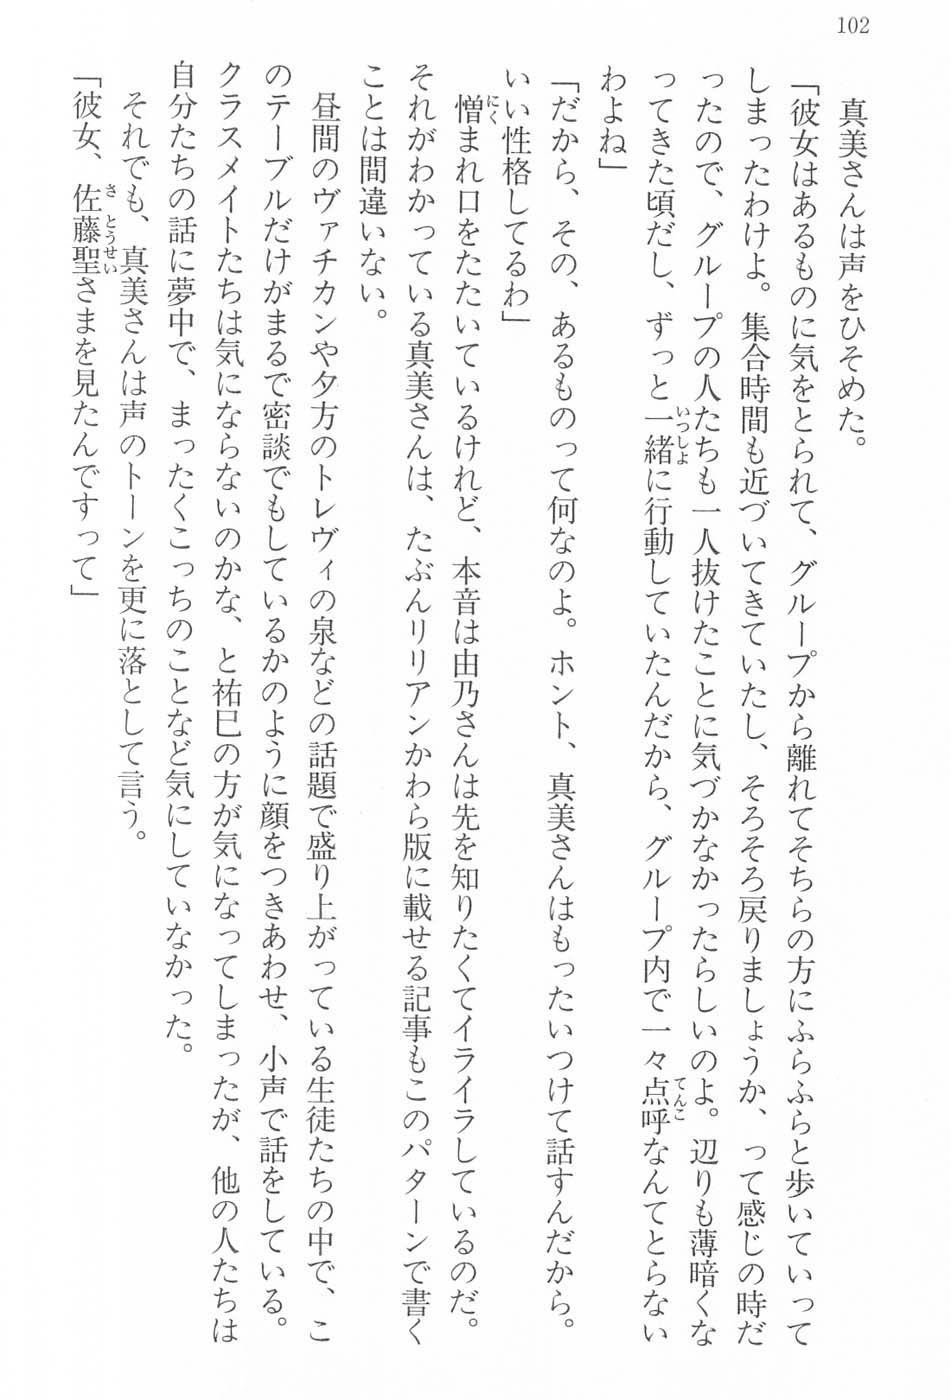 102
真美さんは声をひそめた。
「彼女はあるものに気をとられて、グループから離れてそちらの方にふらふらと歩いていって
しまったわけよ。集合時間も近づいてきていたし、そろそろ戻りましょうか、って感じの時だ
ったので、グループの人たちも一人抜けたことに気づかなかったらしいのよ。辺りも薄暗くな
ってきた頃だし、ずっと一緒に行動していたんだから、グループ内で一々点呼なんてとらない
わよね」
「だから、その、あるものって何なのよ。ホント、真美さんはもったいつけて話すんだから。
いい性格してるわ」
憎まれ口をたたいているけれど、本音は由乃さんは先を知りたくてイライラしているのだ。
それがわかっている真美さんは、たぶんリリアンかわら版に載せる記事もこのパターンで書く
ことは間違いない。
昼間のヴァチカンや夕方のトレヴィの泉などの話題で盛り上がっている生徒たちの中で、こ
のテーブルだけがまるで密談でもしているかのように顔をつきあわせ、小声で話をしている。
クラスメイトたちは気にならないのかな、と祐巳の方が気になってしまったが、他の人たちは
自分たちの話に夢中で、まったくこっちのことなど気にしていなかった。
それでも、真美さんは声のトーンを更に落として言う。
「彼女、佐藤聖さまを見たんですって」